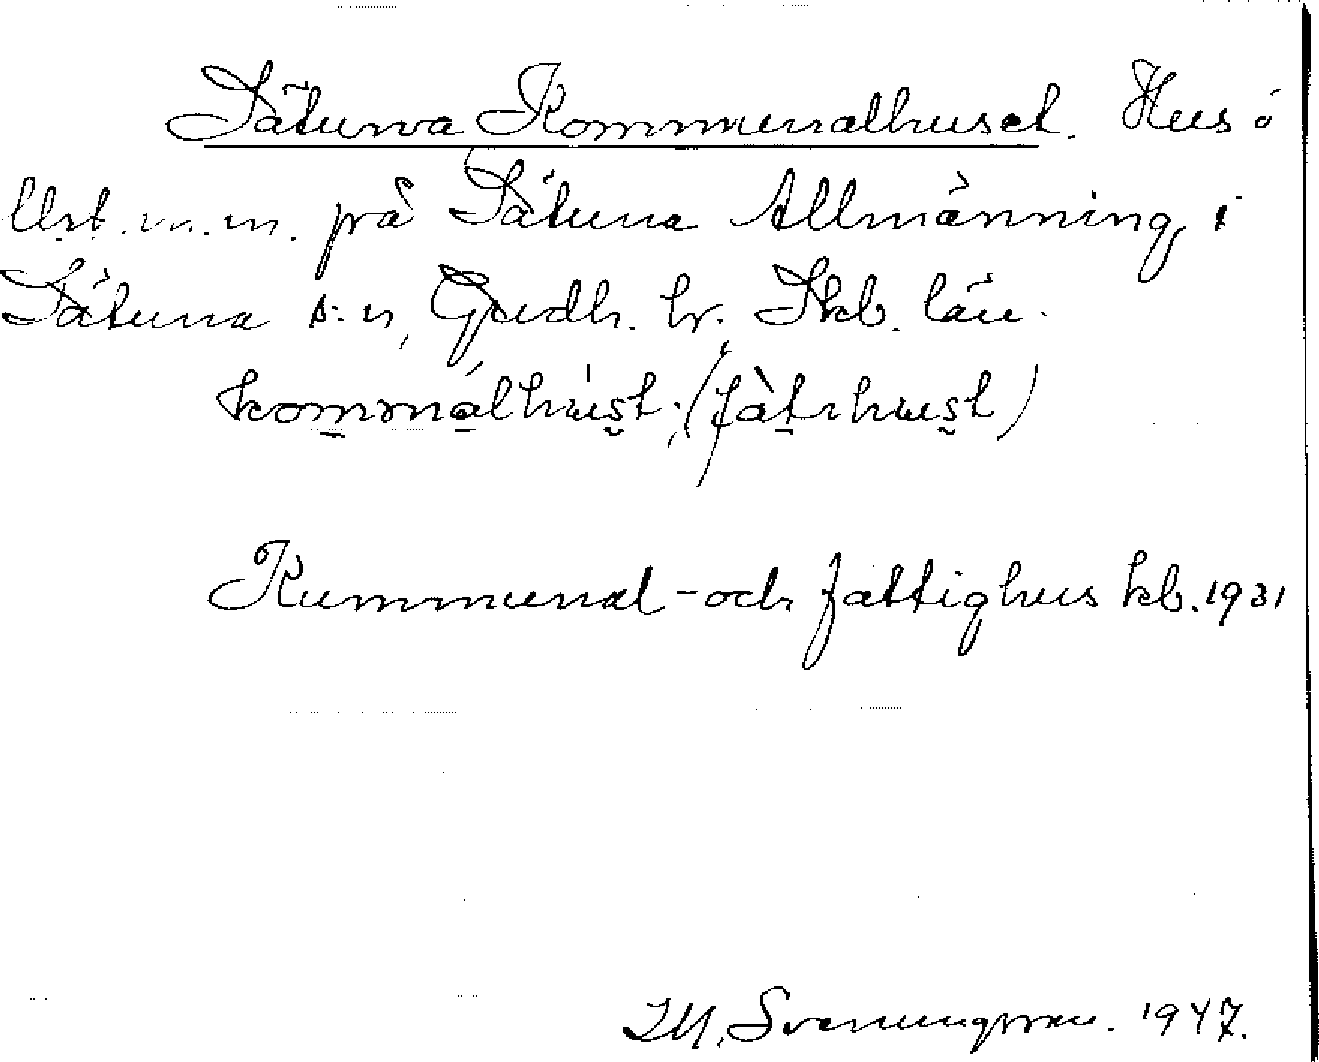 Sätuna Kommunalhuset. Hus å
Ust. m.m. på Sätuna Allmänning, i
Sätuna s:n, Gudh. hr. Skb. län.
kommálhùst; (fàtihust)
Kummunal-och fattighus kb. 1931
Svenungsson. 1947.